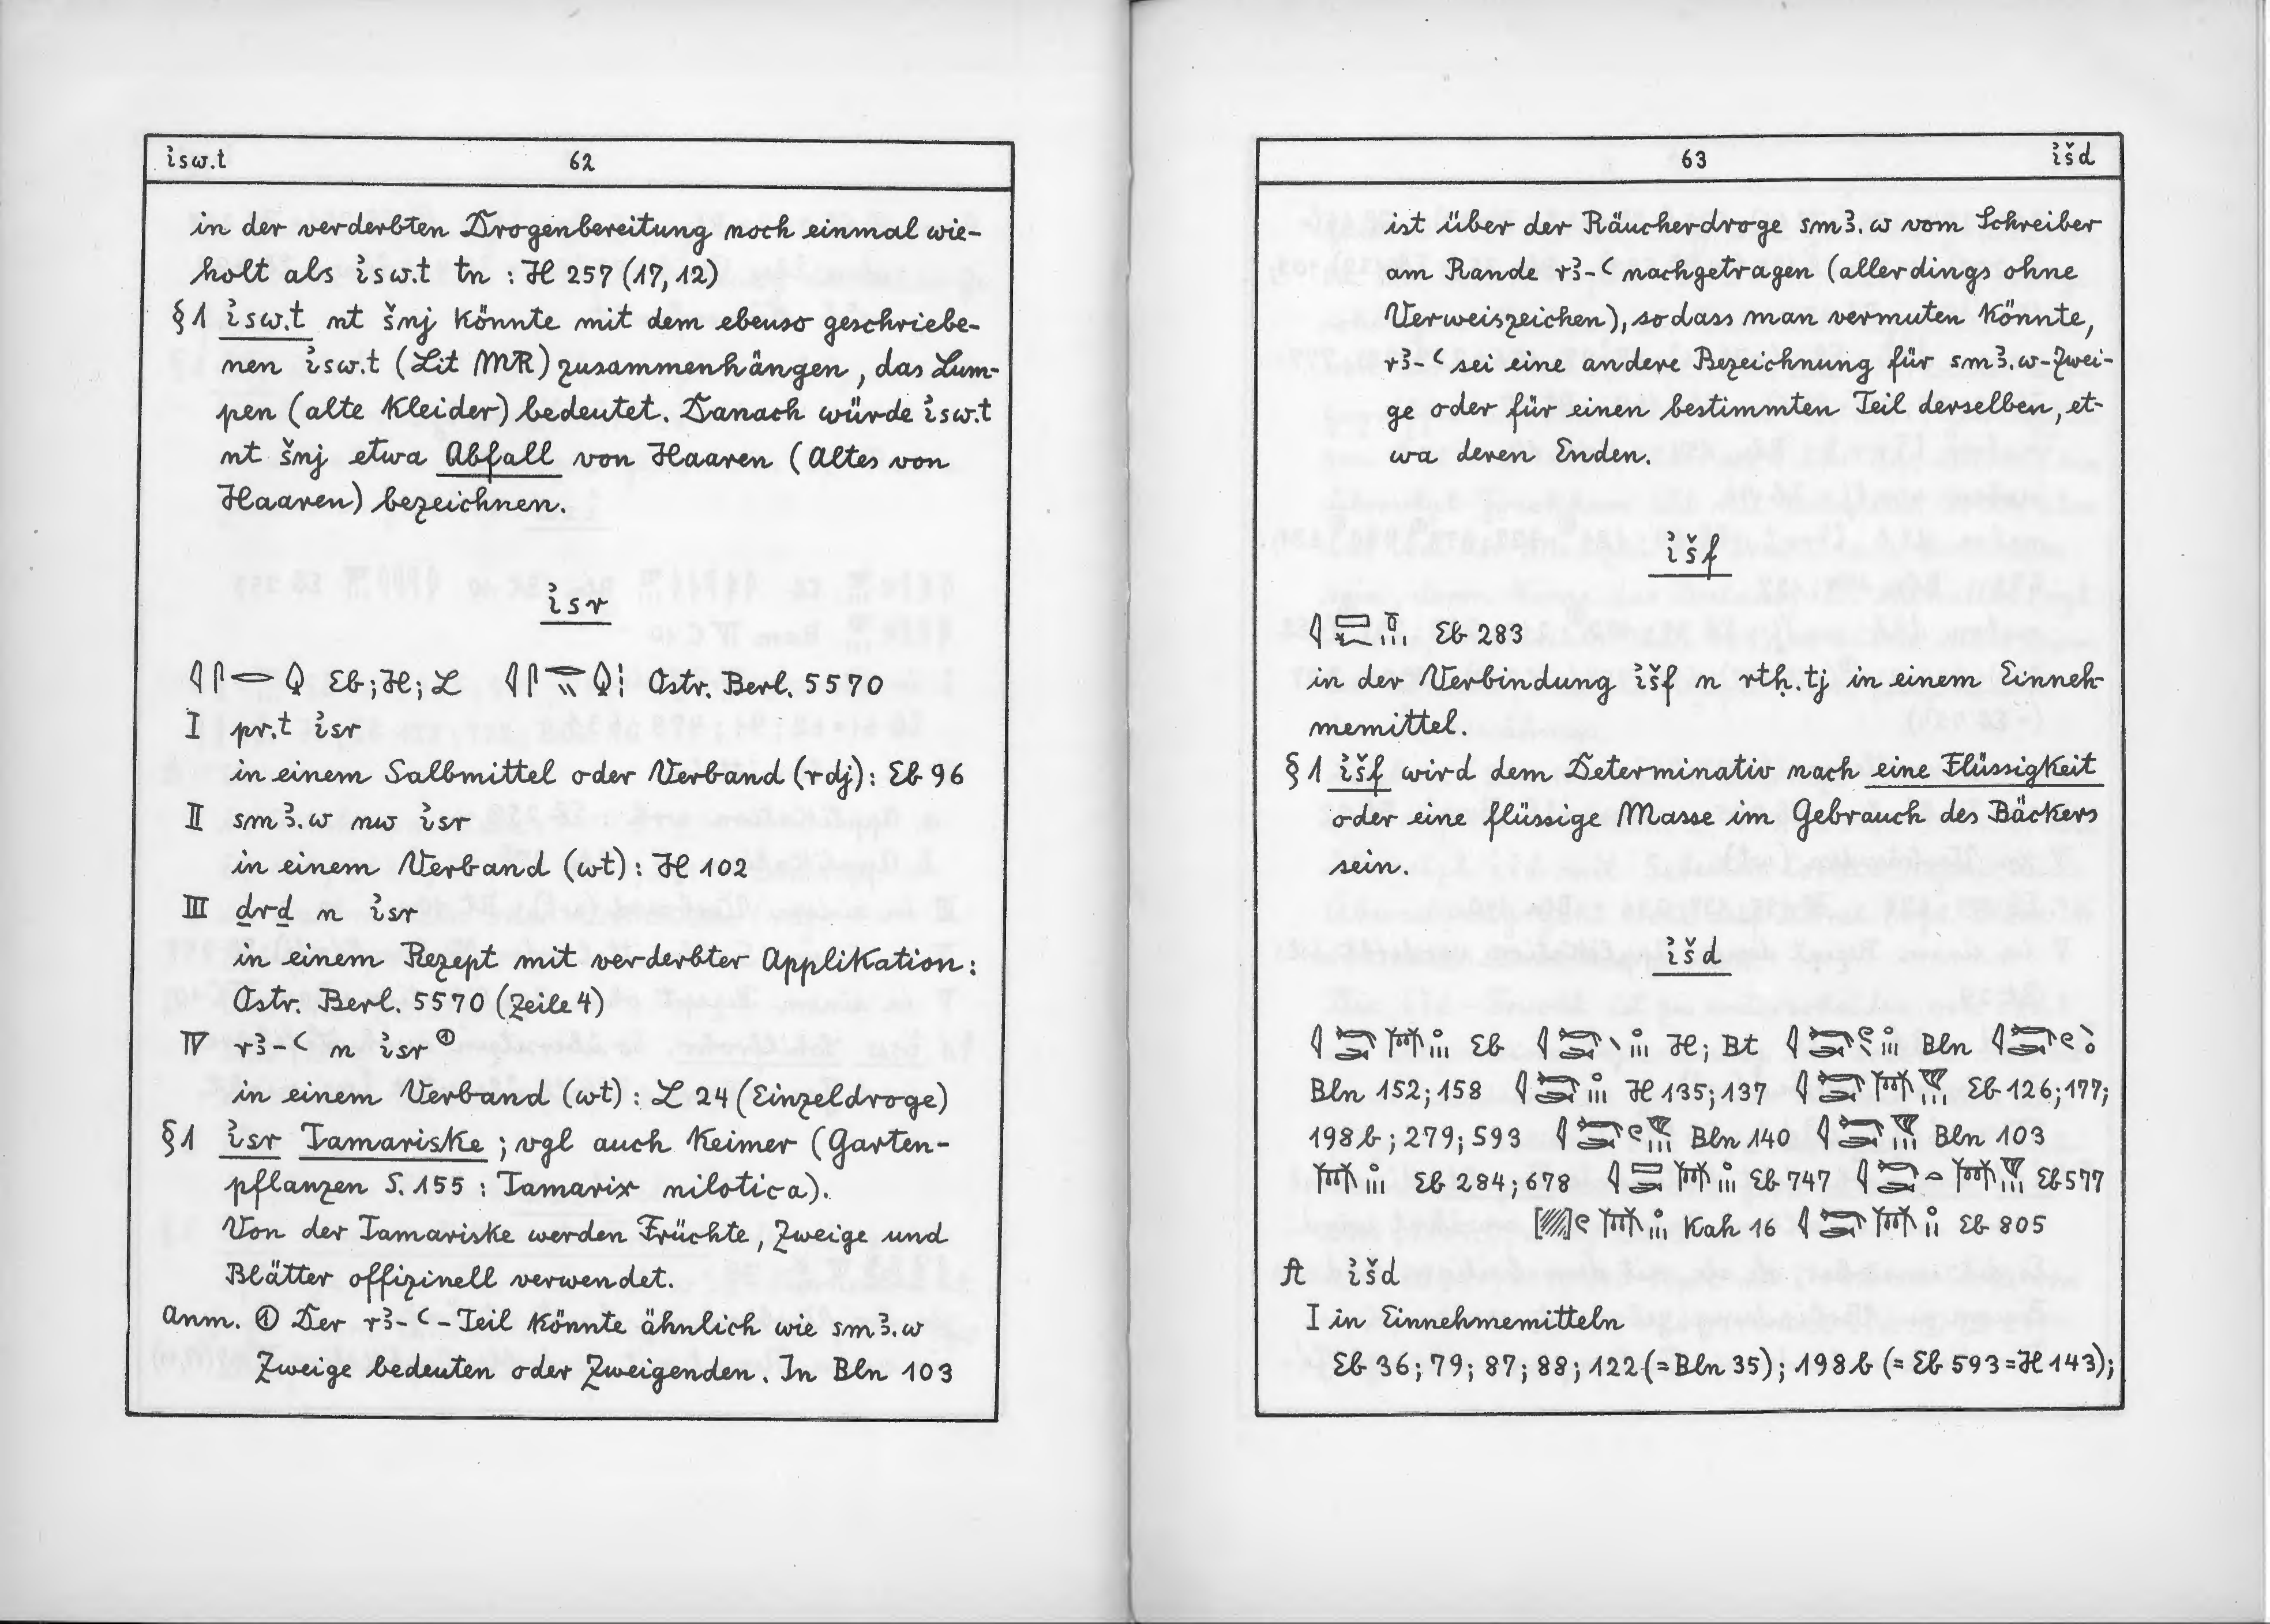 ı͗sw.t 62
in der verderbten Drogenbereitung noch einmal wie-
holt als ı͗sw.t tn : H 257 (17,12)
§1 ı͗sw.t nt šnj könnte mit dem ebenso geschriebe-
nen ı͗sw.t (Lit MR) zusammenhängen, das Lum-
pen (alte Kleider) bedeutet. Danach würde ı͗sw.t
nt šnj etwa Abfall von Haaren (Altes von
Haaren) bezeichnen.
ı͗sr
𓇋𓋴𓂋𓆭 Eb; H; L 𓇋𓋴𓂋𓏭𓆭𓏥 Ostr. Berl. 5570
I pr.t ı͗sr
in einem Salbmittel oder Verband (rdj): Eb 96
II smꜣ.w nw ı͗sr
in einem Verband (wt): H 102
III ḏrḏ n ı͗sr
in einem Rezept mit verderbter Applikation:
Ostr. Berl. 5570 (Zeile 4)
IV rꜣ-ꜥ n ı͗sr ①
in einem Verband (wt): L 24 (Einzeldroge)
§1 ı͗sr Tamariske; vgl auch Keimer (Garten-
pflanzen S. 155 : Tamarix nilotica).
Von der Tamariske werden Früchte, Zweige und
Blätter offizinell verwendet.
Anm. ① Der rꜣ-ꜥ-Teil könnte ähnlich wie smꜣ.w
Zweige bedeuten oder Zweigenden. In Bln 103
63 ı͗šd
ist über der Räucherdroge smꜣ.w vom Schreiber
am Rande rꜣ-ꜥ nachgetragen (allerdings ohne
Verweiszeichen), sodass man vermuten könnte,
rꜣ-ꜥ sei eine andere Bezeichnung für smꜣ.w-Zwei-
ge oder für einen bestimmten Teil derselben, et-
wa deren Enden.
ı͗šf
𓇋𓈙𓆑 Eb 283
in der Verbindung ı͗šf n rtḥ.tj in einem Einneh-
memittel.
§1 ı͗šf wird dem Determinativ nach eine Flüssigkeit
oder eine flüssige Masse im Gebrauch des Bäckers
sein.
ı͗šd
Eb H; Bt Bln
Bln 152; 158 H 135; 137 Eb 126; 177;
198b; 279; 593 Bln 140 Bln 103
Eb 284; 678 Eb 747 Eb 577
Kah 16 Eb 805
A ı͗šd
I in Einnehmemitteln
Eb 36; 79; 87; 88; 122 (=Bln 35); 198b (= Eb 593 = H 143);